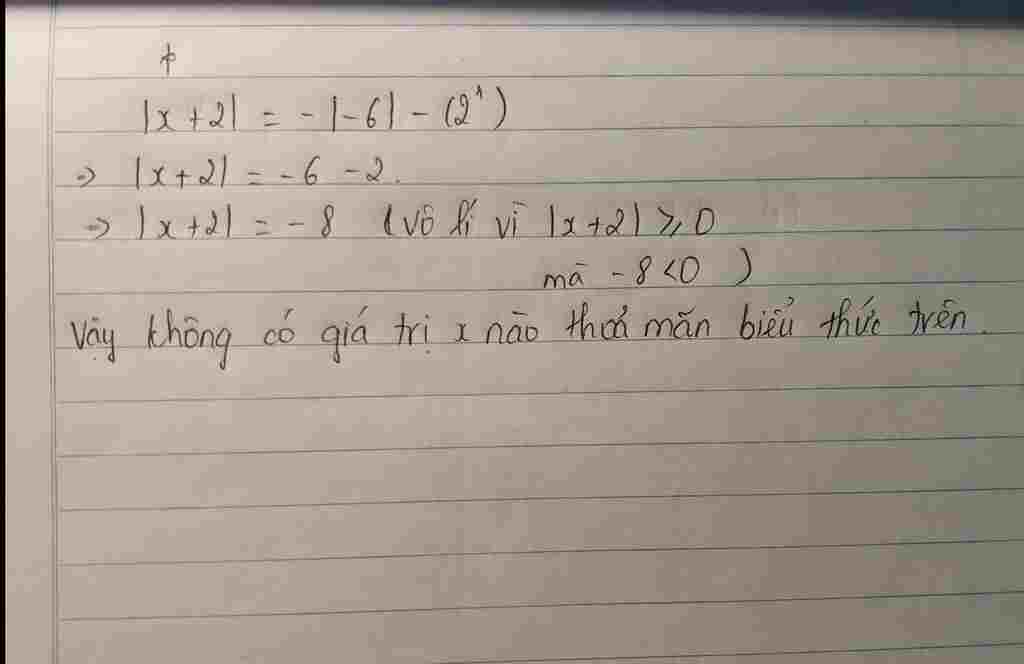 |x+2| = -|-6| - (2¹)
=> |x+2| = -6 -2.
=> |x+2| = -8 (vô lí vì |x+2| ≥ 0
mà -8 < 0 )
Vậy không có giá trị x nào thoả mãn biểu thức trên.